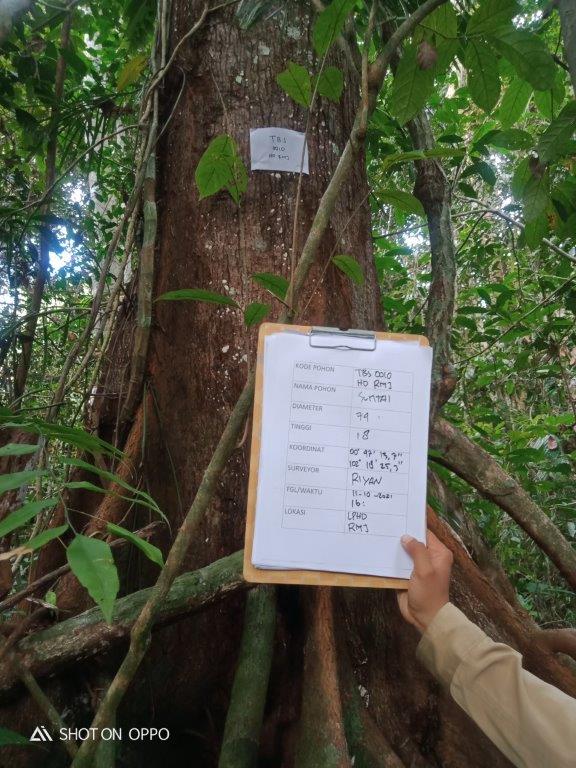 TBS
0010
HD RMJ
KODE POHON TBS 0010
HD RMJ
NAMA POHON SUNTAI
DIAMETER 79
TINGGI 18
KOORDINAT 00° 47' 13,7"
102° 18' 25,3"
SURVEYOR RIYAN
FGL/WAKTU 11-10-2021
16:
LOKASI LPHD
RMJ
SHOT ON OPPO